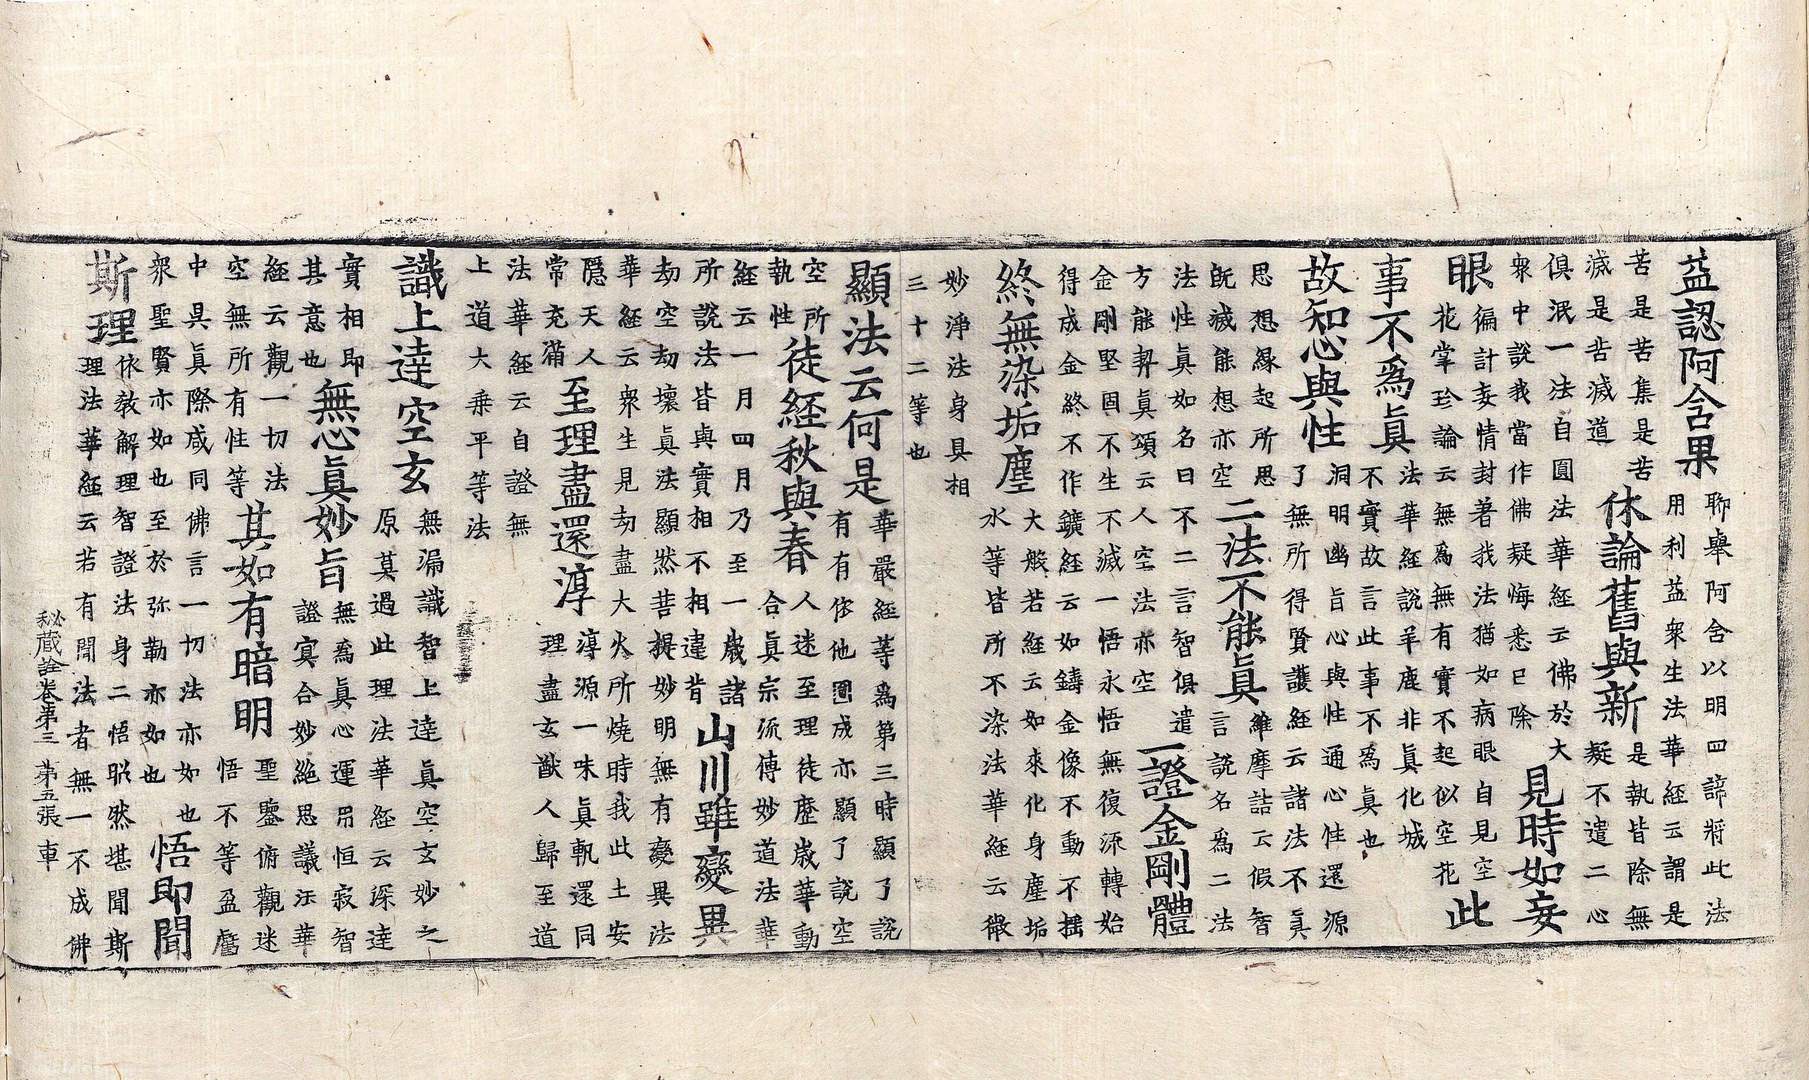 益認阿含果
聊舉阿含以明四諦將此法
用利益衆生法華經云謂是
苦是苦集是苦
滅是苦滅道
休論舊與新
是執皆除無
疑不遣二心
俱泯一法自圓法華經云佛於大
衆中說我當作佛疑悔悉已除
見時如妄
眼
徧計妄情封著我法猶如病眼自見空
花掌珍論云無爲無有實不起似空花
此
事不爲眞
法華經說羊鹿非眞化城
不實故言此事不爲眞也
故知心與性
洞明幽旨心與性通心性還源
了無所得賢護經云諸法不眞
思想緣起所思
旣滅能想亦空
二法不能眞
維摩詰云假智
言說名爲二法
法性眞如名曰不二言智俱遣
方能契眞頌云人空法亦空
一證金剛體
金剛堅固不生不滅一悟永悟無復流轉始
得成金終不作鑛經云如鑄金像不動不搖
終無染垢塵
大般若經云如來化身塵垢
水等皆所不染法華經云微
妙淨法身具相
三十二等也
顯法云何是
華嚴經等爲第三時顯了說
有有依他圓成亦顯了說空
空所
執性
徒經秋與春
人迷至理徒歷歲華動
合眞宗流傳妙道法華
經云一月四月乃至一歲諸
所說法皆與實相不相違背
山川雖變異
劫空劫壞眞法顯然菩提妙明無有變異法
華經云衆生見劫盡大火所燒時我此土安
隱天人
常充滿
至理盡還淳
淳源一味眞執還同
理盡玄猷人歸至道
法華經云自證無
上道大乘平等法
識上達空玄
無漏識智上達眞空玄妙之
原莫過此理法華經云深達
實相即
其意也
無心眞妙旨
無爲眞心運用恒寂智
證冥合妙絕思議法華
經云觀一切法
空無所有性等
其如有暗明
聖鑒俯觀迷
悟不等盈虧
中具眞際咸同佛言一切法亦如也
衆聖賢亦如也至於弥勒亦如也
悟即聞
斯理
依敎解理智證法身二悟昭然堪聞斯
理法華經云若有聞法者無一不成佛
秘藏詮卷第三 第五張 車